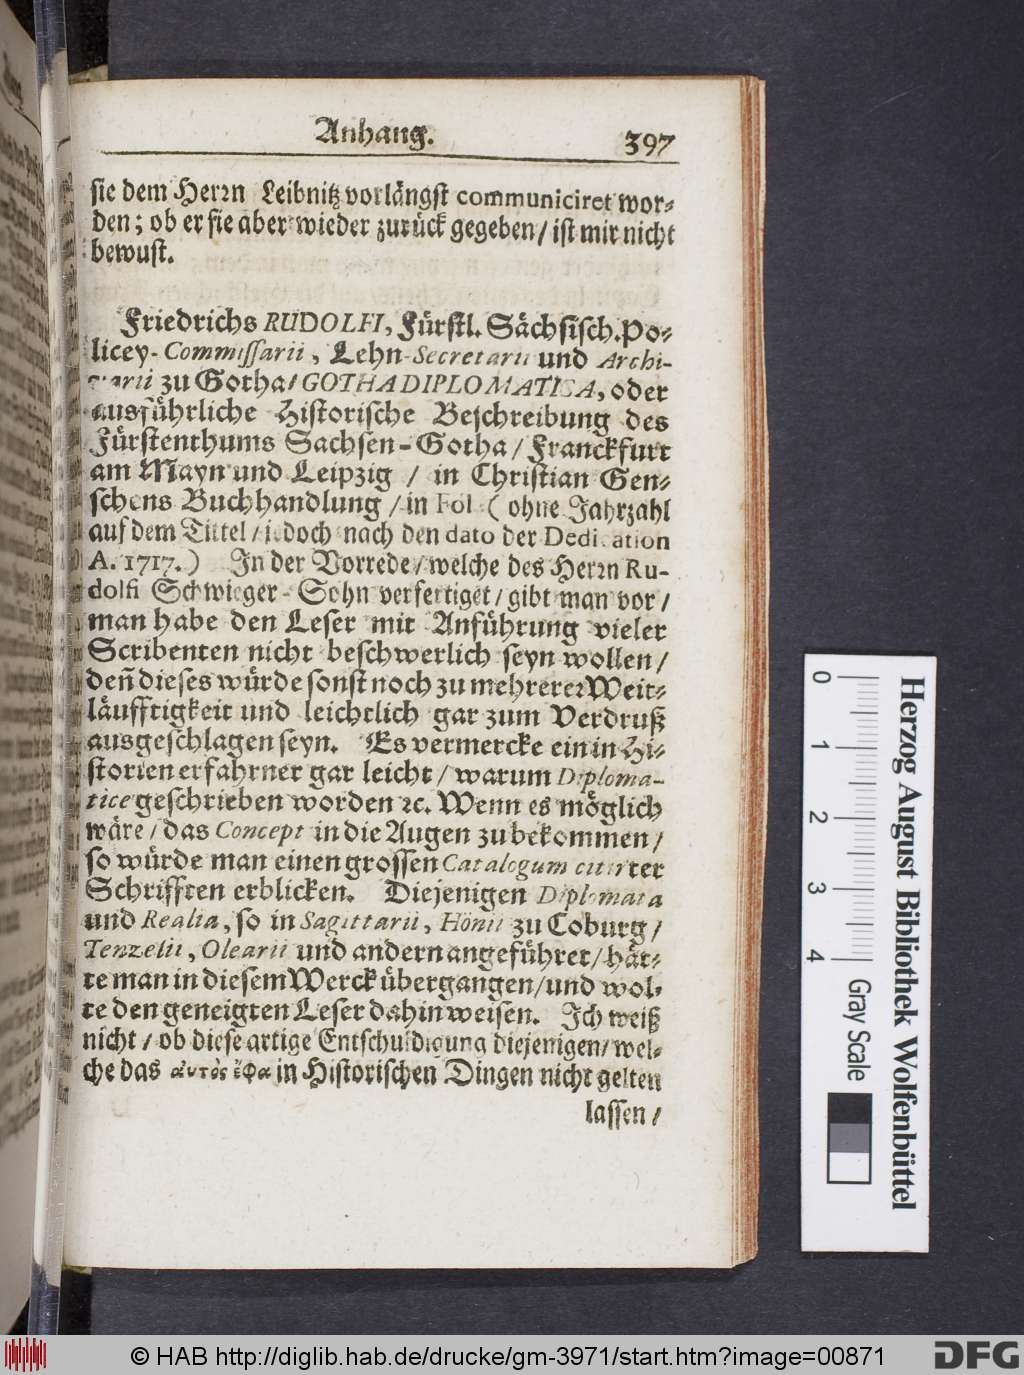 Anhang. 397
sie dem Herrn Leibnitz vorlängst communiciret wor-
den; ob er sie aber wieder zurück gegeben/ ist mir nicht
bewust.
Friedrichs RUDOLFI, Fürstl. Sächsisch. Po-
licey-Commissarii, Lehn-Secretarii und Archi-
varii zu Gotha/ GOTHA DIPLOMATICA, oder
ausführliche Historische Beschreibung des
Fürstenthums Sachsen-Gotha/ Franckfurt
am Mayn und Leipzig / in Christian Gen-
schens Buchhandlung / in Fol. ( ohne Jahrzahl
auf dem Tittel / jedoch nach den dato der Dedication
A. 1717. ) In der Vorrede / welche des Herrn Ru-
dolfi Schwieger-Sohn verfertiget / gibt man vor /
man habe den Leser mit Anführung vieler
Scribenten nicht beschwerlich seyn wollen /
deñ dieses würde sonst noch zu mehrerer Weit-
läufftigkeit und leichtlich gar zum Verdruß
ausgeschlagen seyn. Es vermercke ein in Hi-
storien erfahrner gar leicht / warum Diploma-
tice geschrieben worden ꝛc. Wenn es möglich
wäre / das Concept in die Augen zu bekommen /
so würde man einen grossen Catalogum citirter
Schrifften erblicken. Diejenigen Diplomata
und Realia, so in Sagittarii, Hönii zu Coburg /
Tenzelii, Olearii und andern angeführet / hät-
te man in diesem Werck übergangen / und wol-
te den geneigten Leser dahin weisen. Ich weiß
nicht / ob diese artige Entschuldigung diejenigen / wel-
che das αὐτὸς ἔφα in Historischen Dingen nicht gelten
lassen /
0 1 2 3 4
Gray Scale
Herzog August Bibliothek Wolfenbüttel
© HAB http://diglib.hab.de/drucke/gm-3971/start.htm?image=00871
DFG